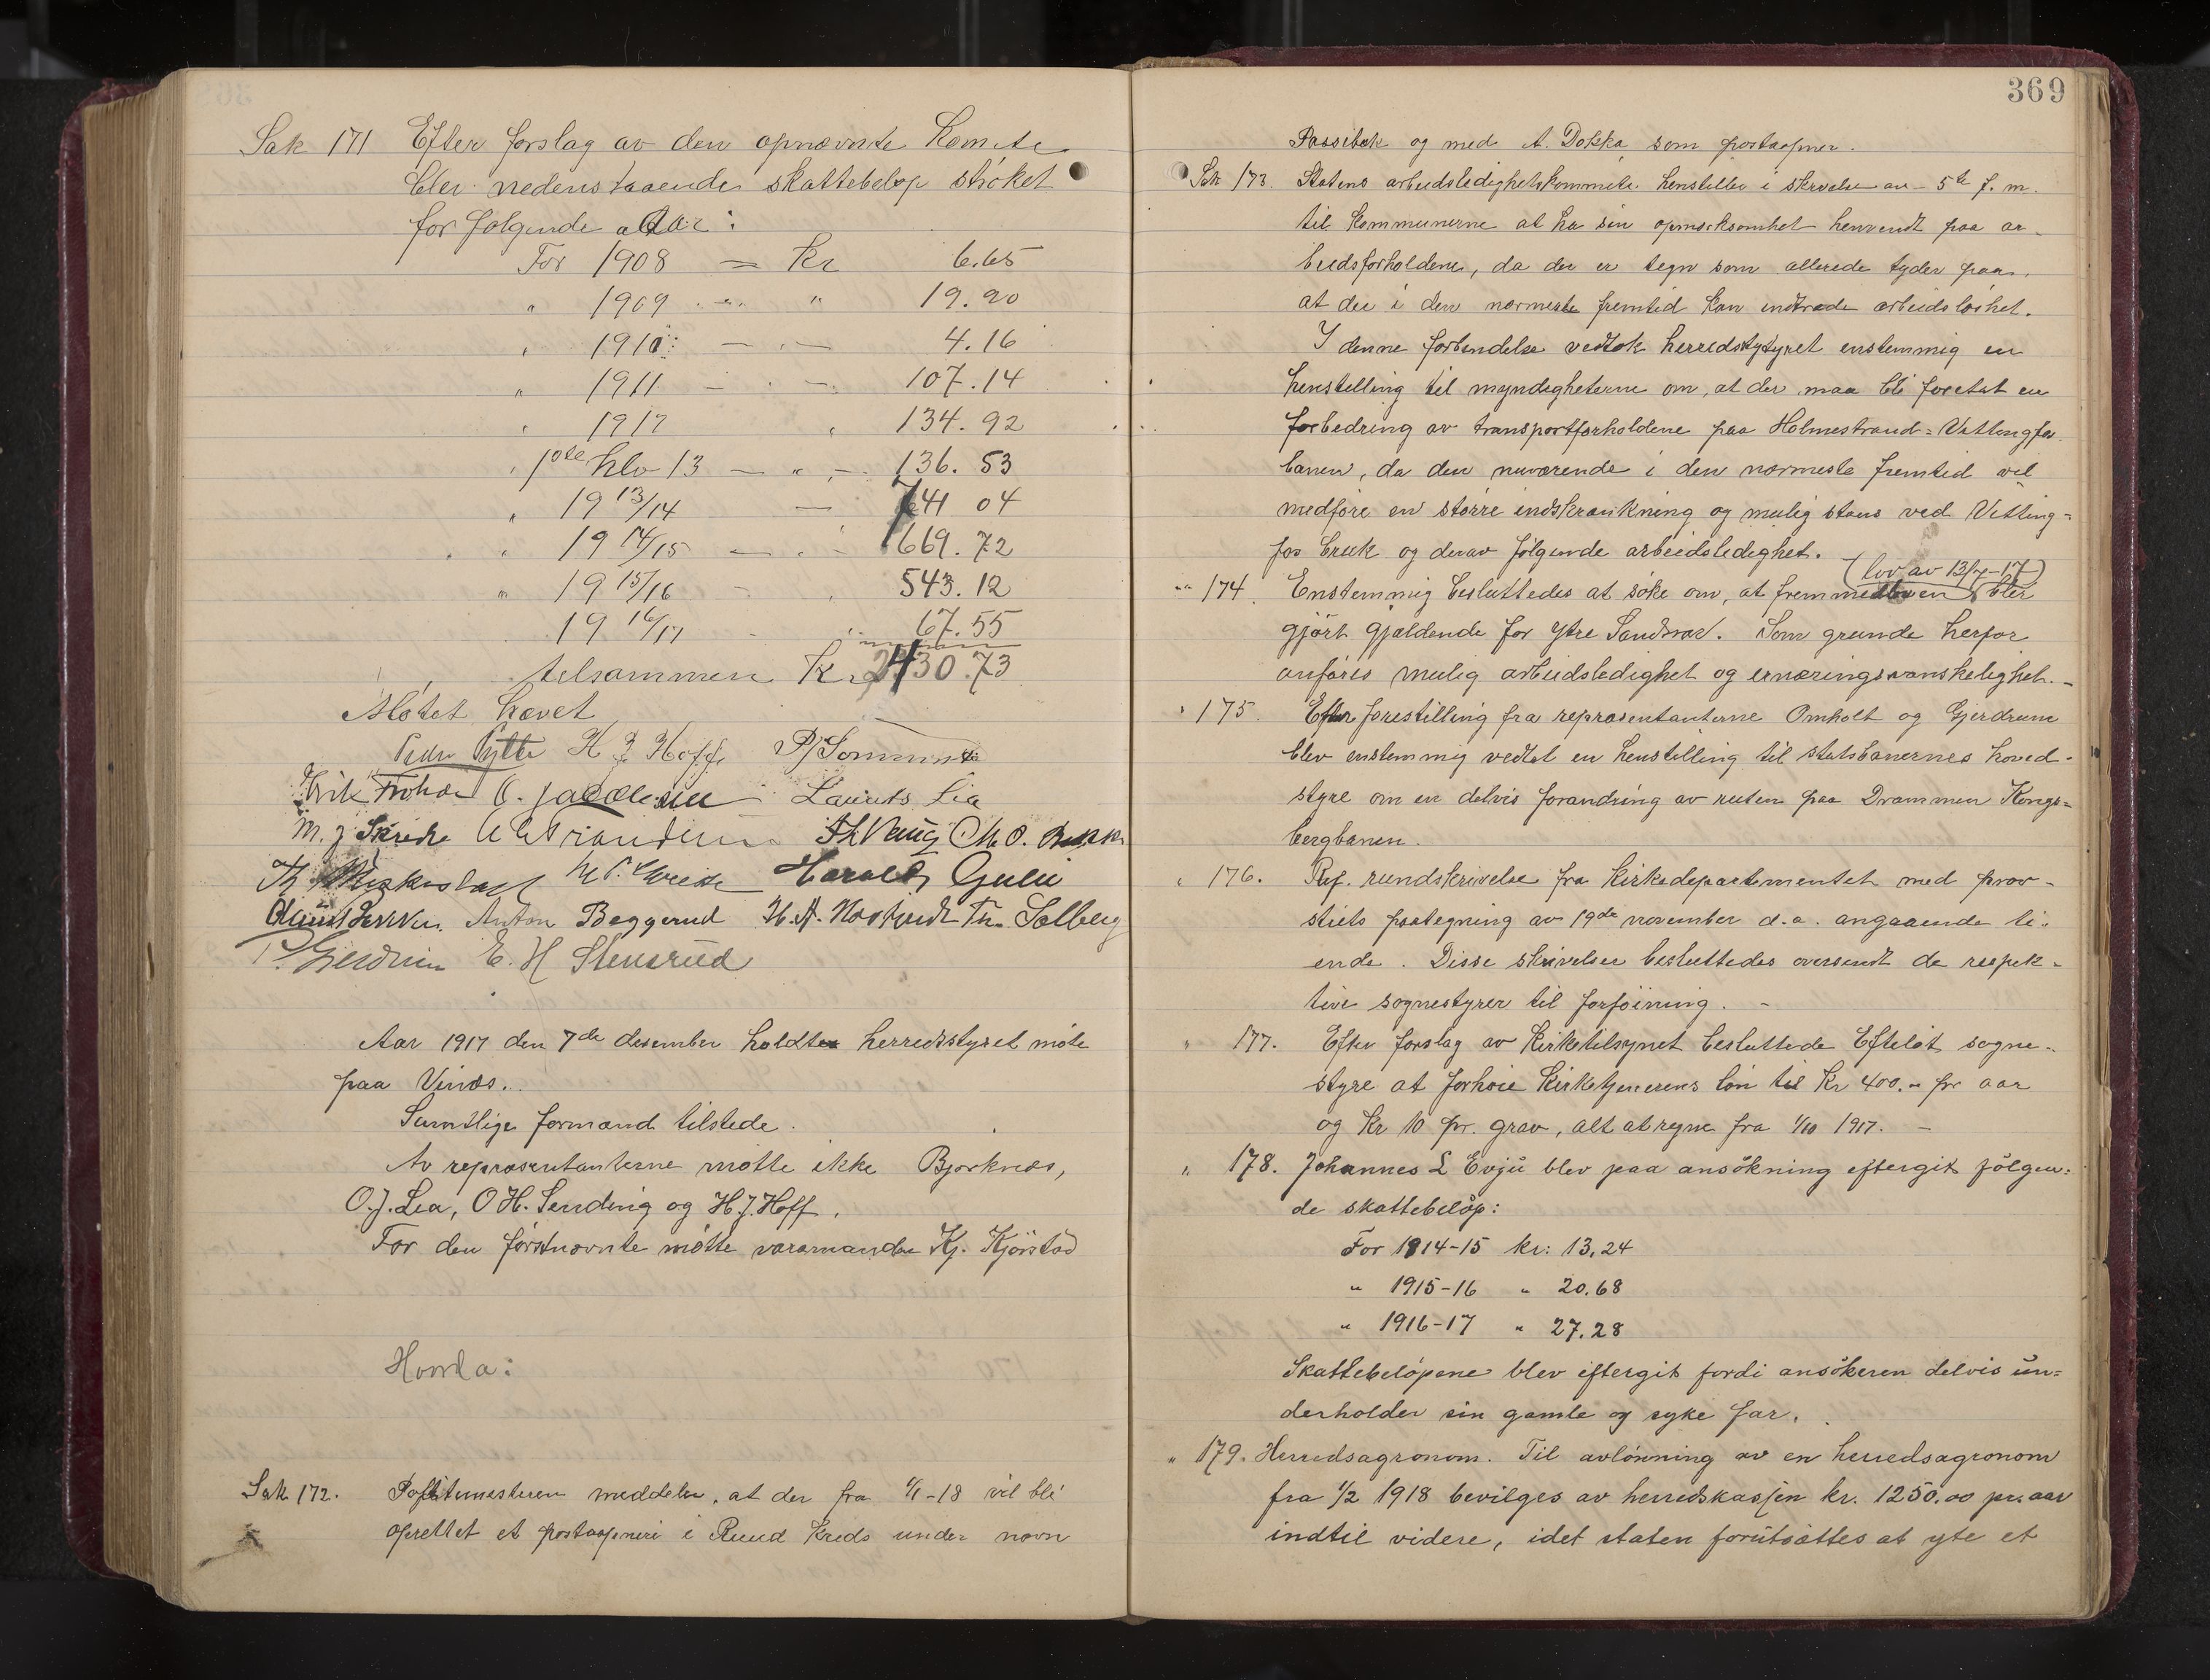 Sak 171 Efter forslag av den opnævnte Komite
blev nedenstaaende skattebeløp strøket
for følgende aar:
For 1908 — Kr 6.65
" 1909 - " - " 19.20
" 1910 — " — 4.16
" 1911 — " — 107.14
" 1912 " 134.92
" 1ste hlv 13 — " — 136.53
" 19 13/14 — 741 04
" 19 14/15 — " — 669.72
" 19 15/16 — " 543.12
19 16/17 " 67.55
tilsammen Kr 2430.73
Møtet hævet
H J Hoff
Laurits Lia
M. J. Skrede
Harald Gulli
Anton Baggerud Th. Solberg
P. Gjerdrum E. H Stensrud
Aar 1917 den 7de desember holdt herredsstyret møte
paa Vinæs.
Samtlige formænd tilstede.
Av repræsentanterne møtte ikke Bjørknæs,
O. J. Lea, O H. Sending og H. J. Hoff.
For den førstnævnte møtte varamanden Kj. Kjørstad
Hvorda:
Sak 172. Postmesteren meddeler, at der fra 1/1-18 vil bli
oprettet et postaapneri i Ruud kreds under navn
369
Passebæk og med A. Dokka som postaapner.
Sak 173. Statens arbeidsledighetskommite henstiller i skrivelse av 5te f. m.
til kommunerne at ha sin opmerksomhet henvendt paa ar-
beidsforholdene, da der er tegn som allerede tyder paa,
at der i den nærmeste fremtid kan indtræde arbeidsløshet.
I denne forbindelse vedtok herredstytyret enstemmig en
henstilling til myndigheterne om, at der maa bli foretat en
forbedring av transportforholdene paa Holmestrand=Vittingfos
banen, da den nuværende i den nærmeste fremtid vil
medføre en større indskrænkning og mulig stans ved Vitting=
fos bruk og derav følgende arbeidsledighet.
(lov av 13/7-17)
" 174. Enstemmig besluttedes at søke om, at fremmedloven blir
gjørt gjældende for Ytre Sandsvær. Som grunde herfor
anføres mulig arbeidsledighet og ernæringsvanskelighet. -
" 175. Efter forestilling fra repræsentanterne Omholt og Gjerdrum
blev enstemmig vedtat en henstilling til statsbanernes hoved-
styre om en delvis forandring av ruten paa Drammen Kongs=
bergbanen.
" 176. Ref. rundskrivelse fra Kirkedepartementet med prov-
stiets paategning av 19de november d.a. angaaende ti-
ende. Disse skrivelser besluttedes oversendt de respek-
tive sognestyrer til forføining. -
" 177. Efter forslag av Kirketilsynet besluttede Efteløt sogne-
styre at forhøie Kirketjenerens løn til Kr 400.- pr aar
og Kr 10 pr. grav, alt at regne fra 1/10 1917. -
" 178. Johannes L Evju blev paa ansøkning eftergit følgen=
de skattebeløp:
For 1914-15 kr: 13,24
" 1915-16 " 20.68
" 1916-17 " 27.28
Skattebeløpene blev eftergit fordi ansøkeren delvis un=
derholder sin gamle og syke far.
" 179. Herredsagronom. Til avlønning av en herredsagronom
fra 1/2 1918 bevilges av herredskassen kr. 1250.00 pr. aar
indtil videre, idet staten forutsættes at yte et